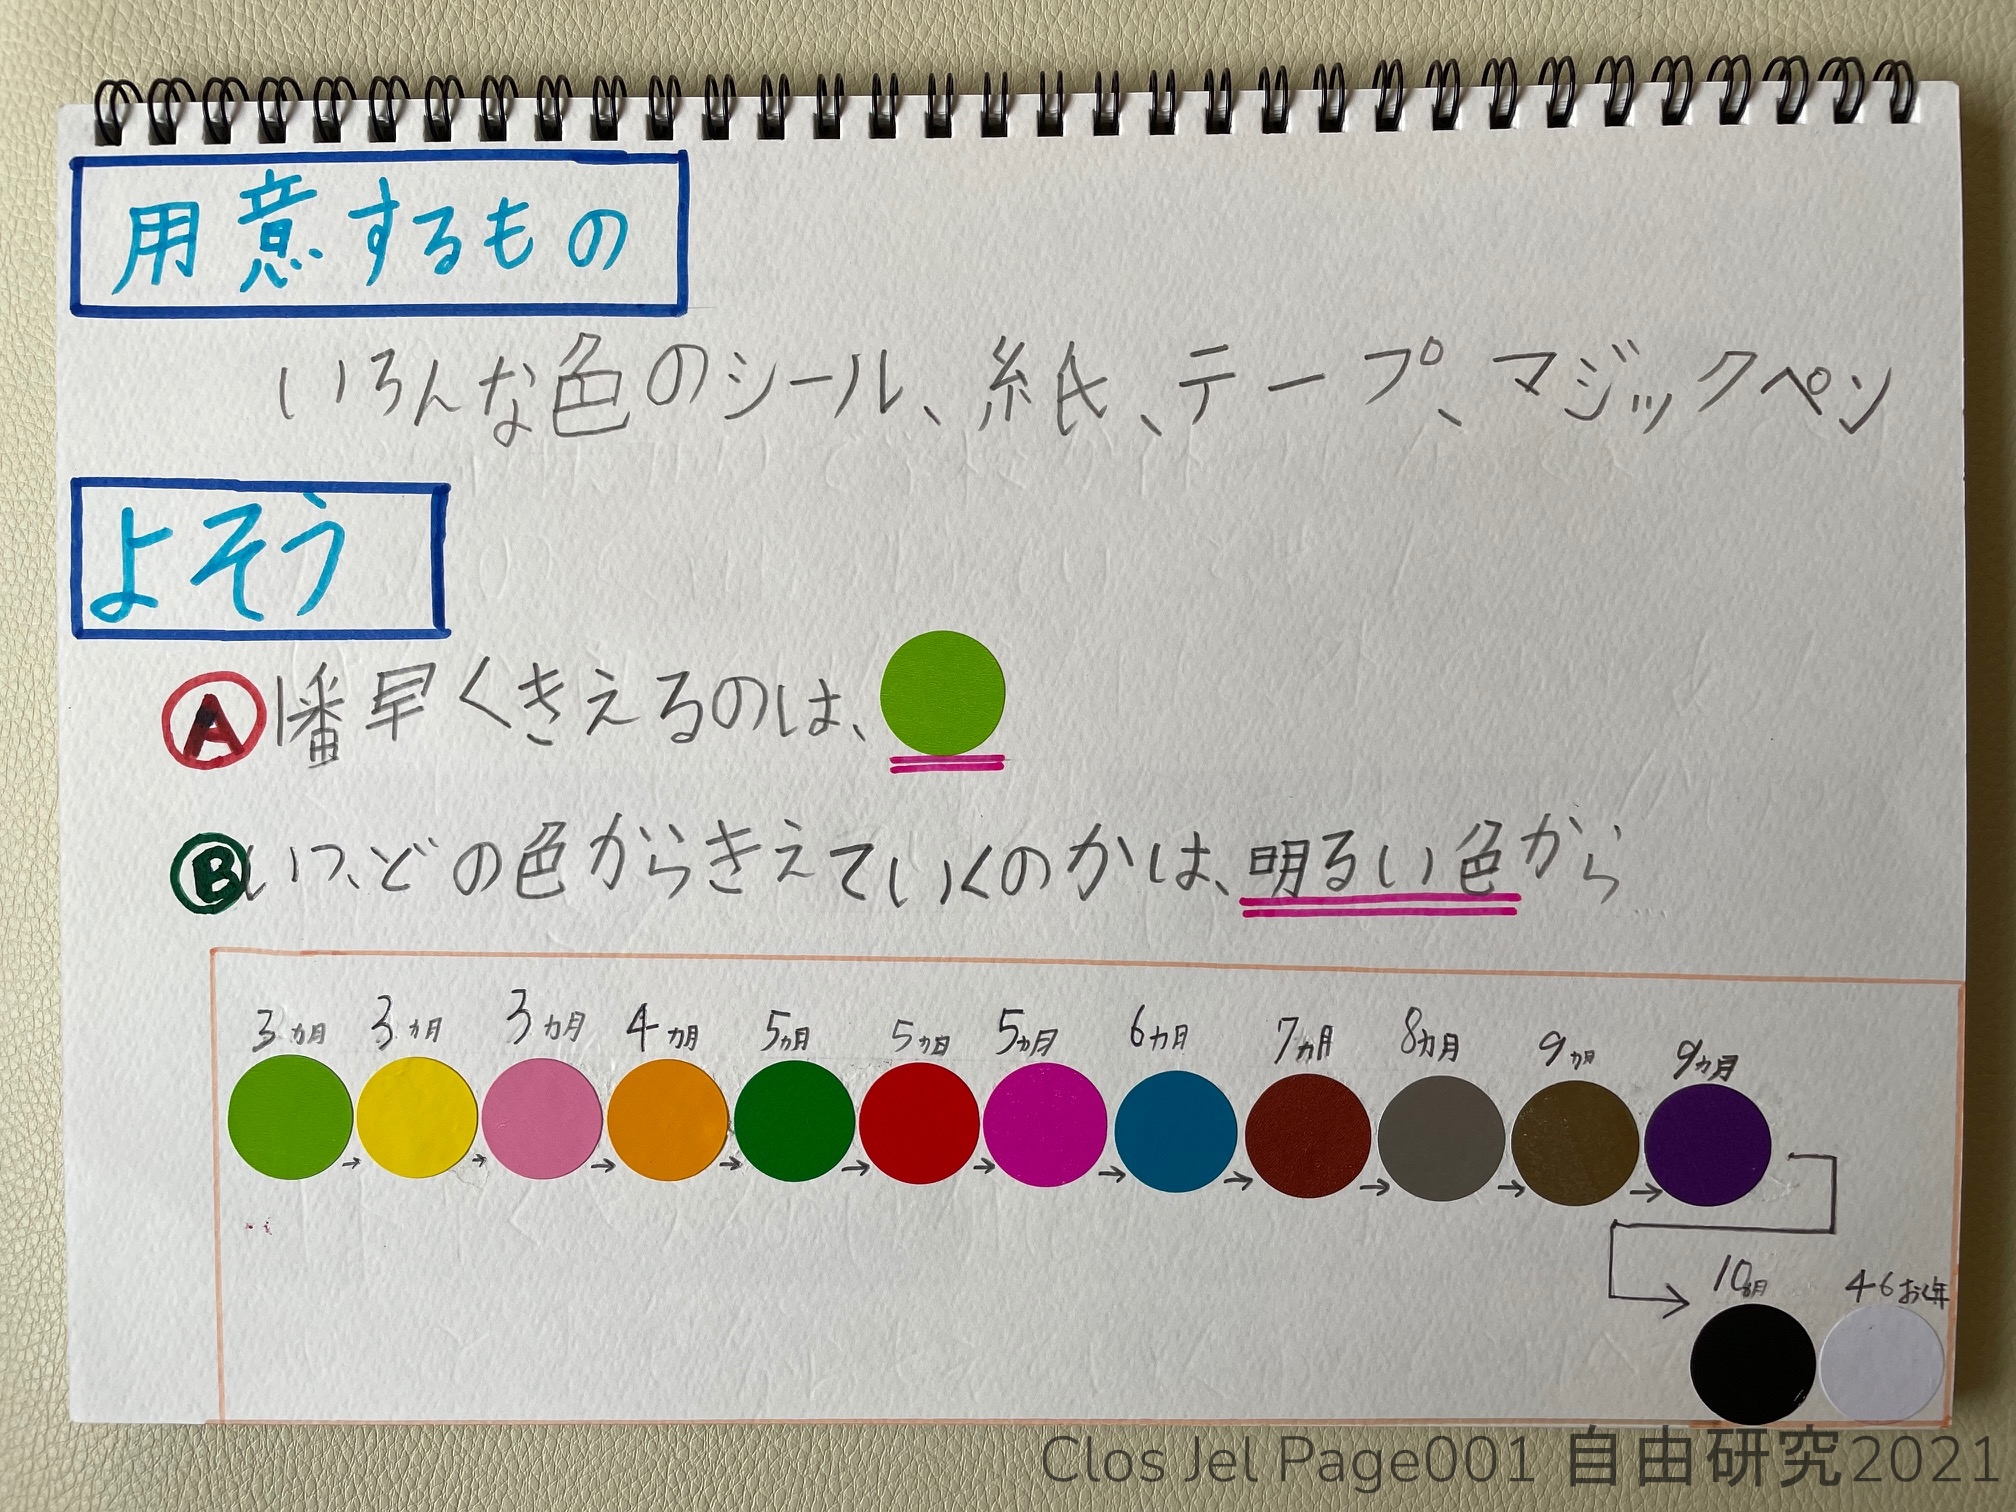 用意するもの
いろんな色のシール、紙、テープ、マジックペン
よそう
A 1番早くきえるのは、
B いつ、どの色からきえていくのかは、明るい色から
3ヵ月 3ヵ月 3ヵ月 4ヵ月 5ヵ月 5ヵ月 5ヵ月 6ヵ月 7ヵ月 8ヵ月 9ヵ月 9ヵ月
10ヵ月 46おく年
Clos Jel Page001 自由研究2021